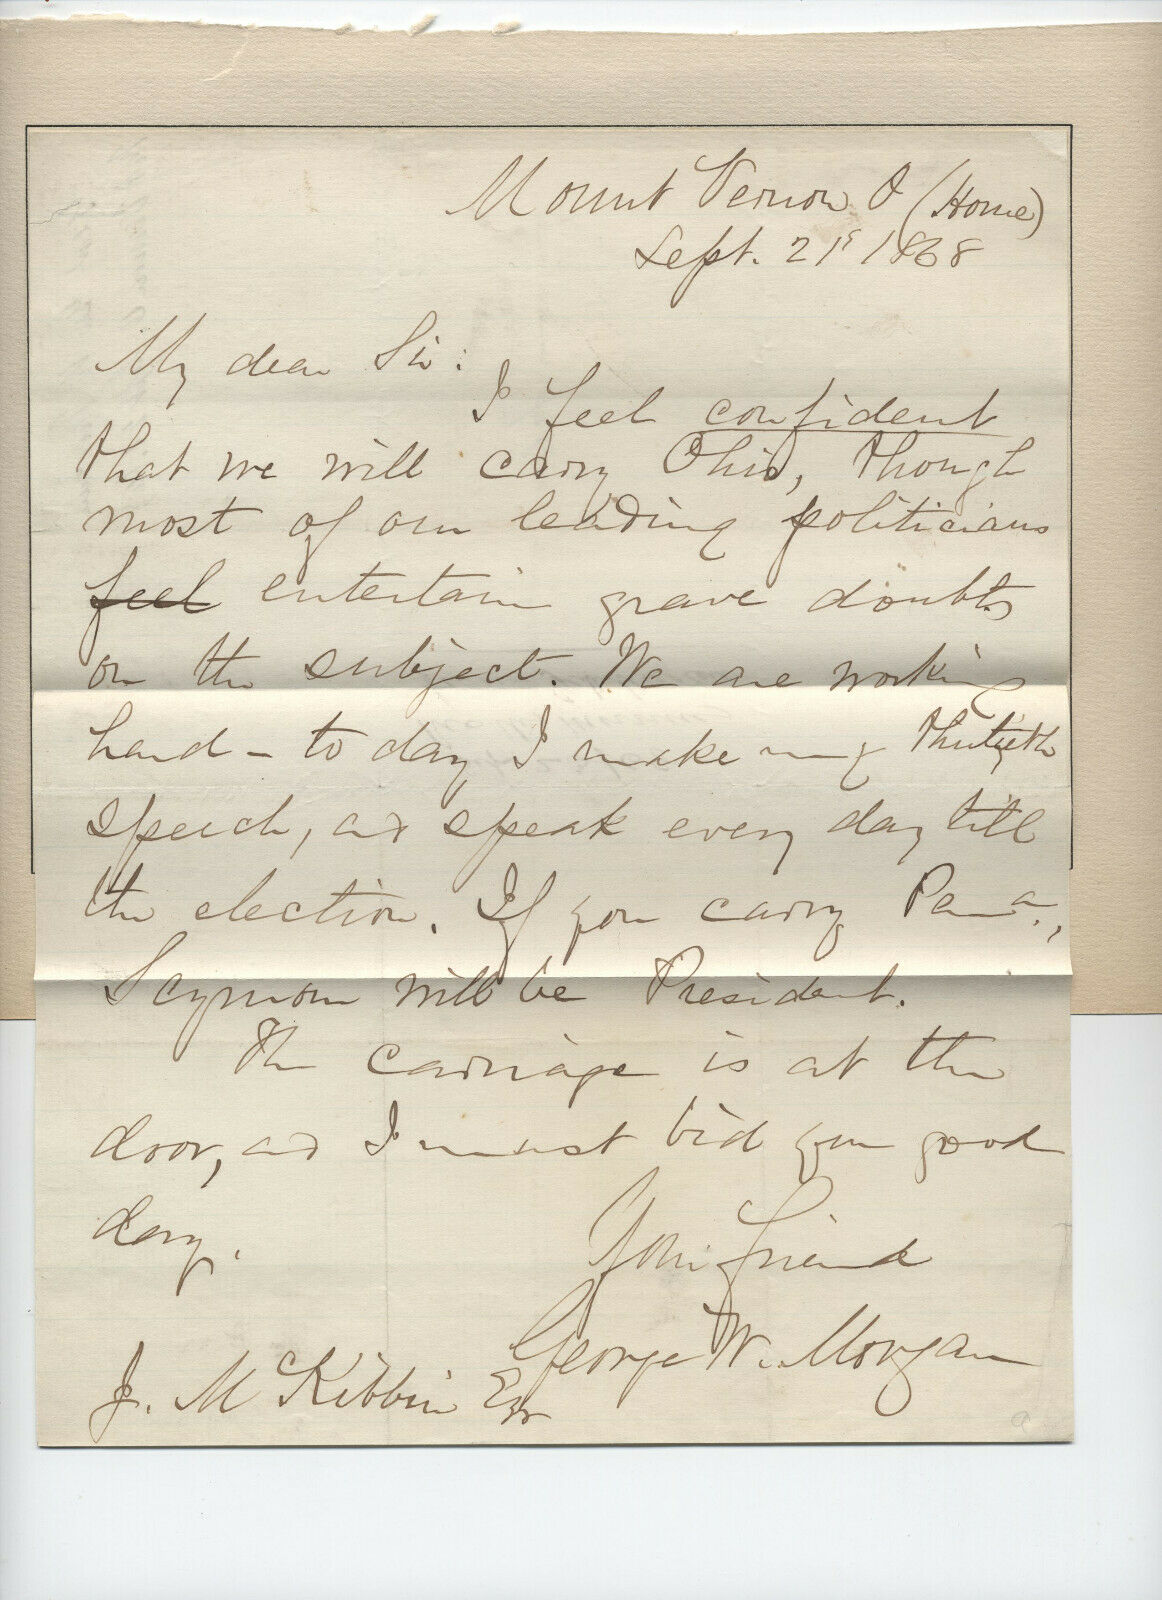 Mount Vernon O (Home)
Sept. 21st 1868
My dear Sir:
I feel confident
that we will carry Ohio, though
most of our leading politicians
feel entertain grave doubts
on the subject. We are working
hard - to day I make my thirtieth
speech, and speak every day till
the election. If you carry Penna.,
Seymour will be President.
The carriage is at the
door, and I must bid you good
day.
Your friend
George W. Morgan
J. McKibbin Esqr